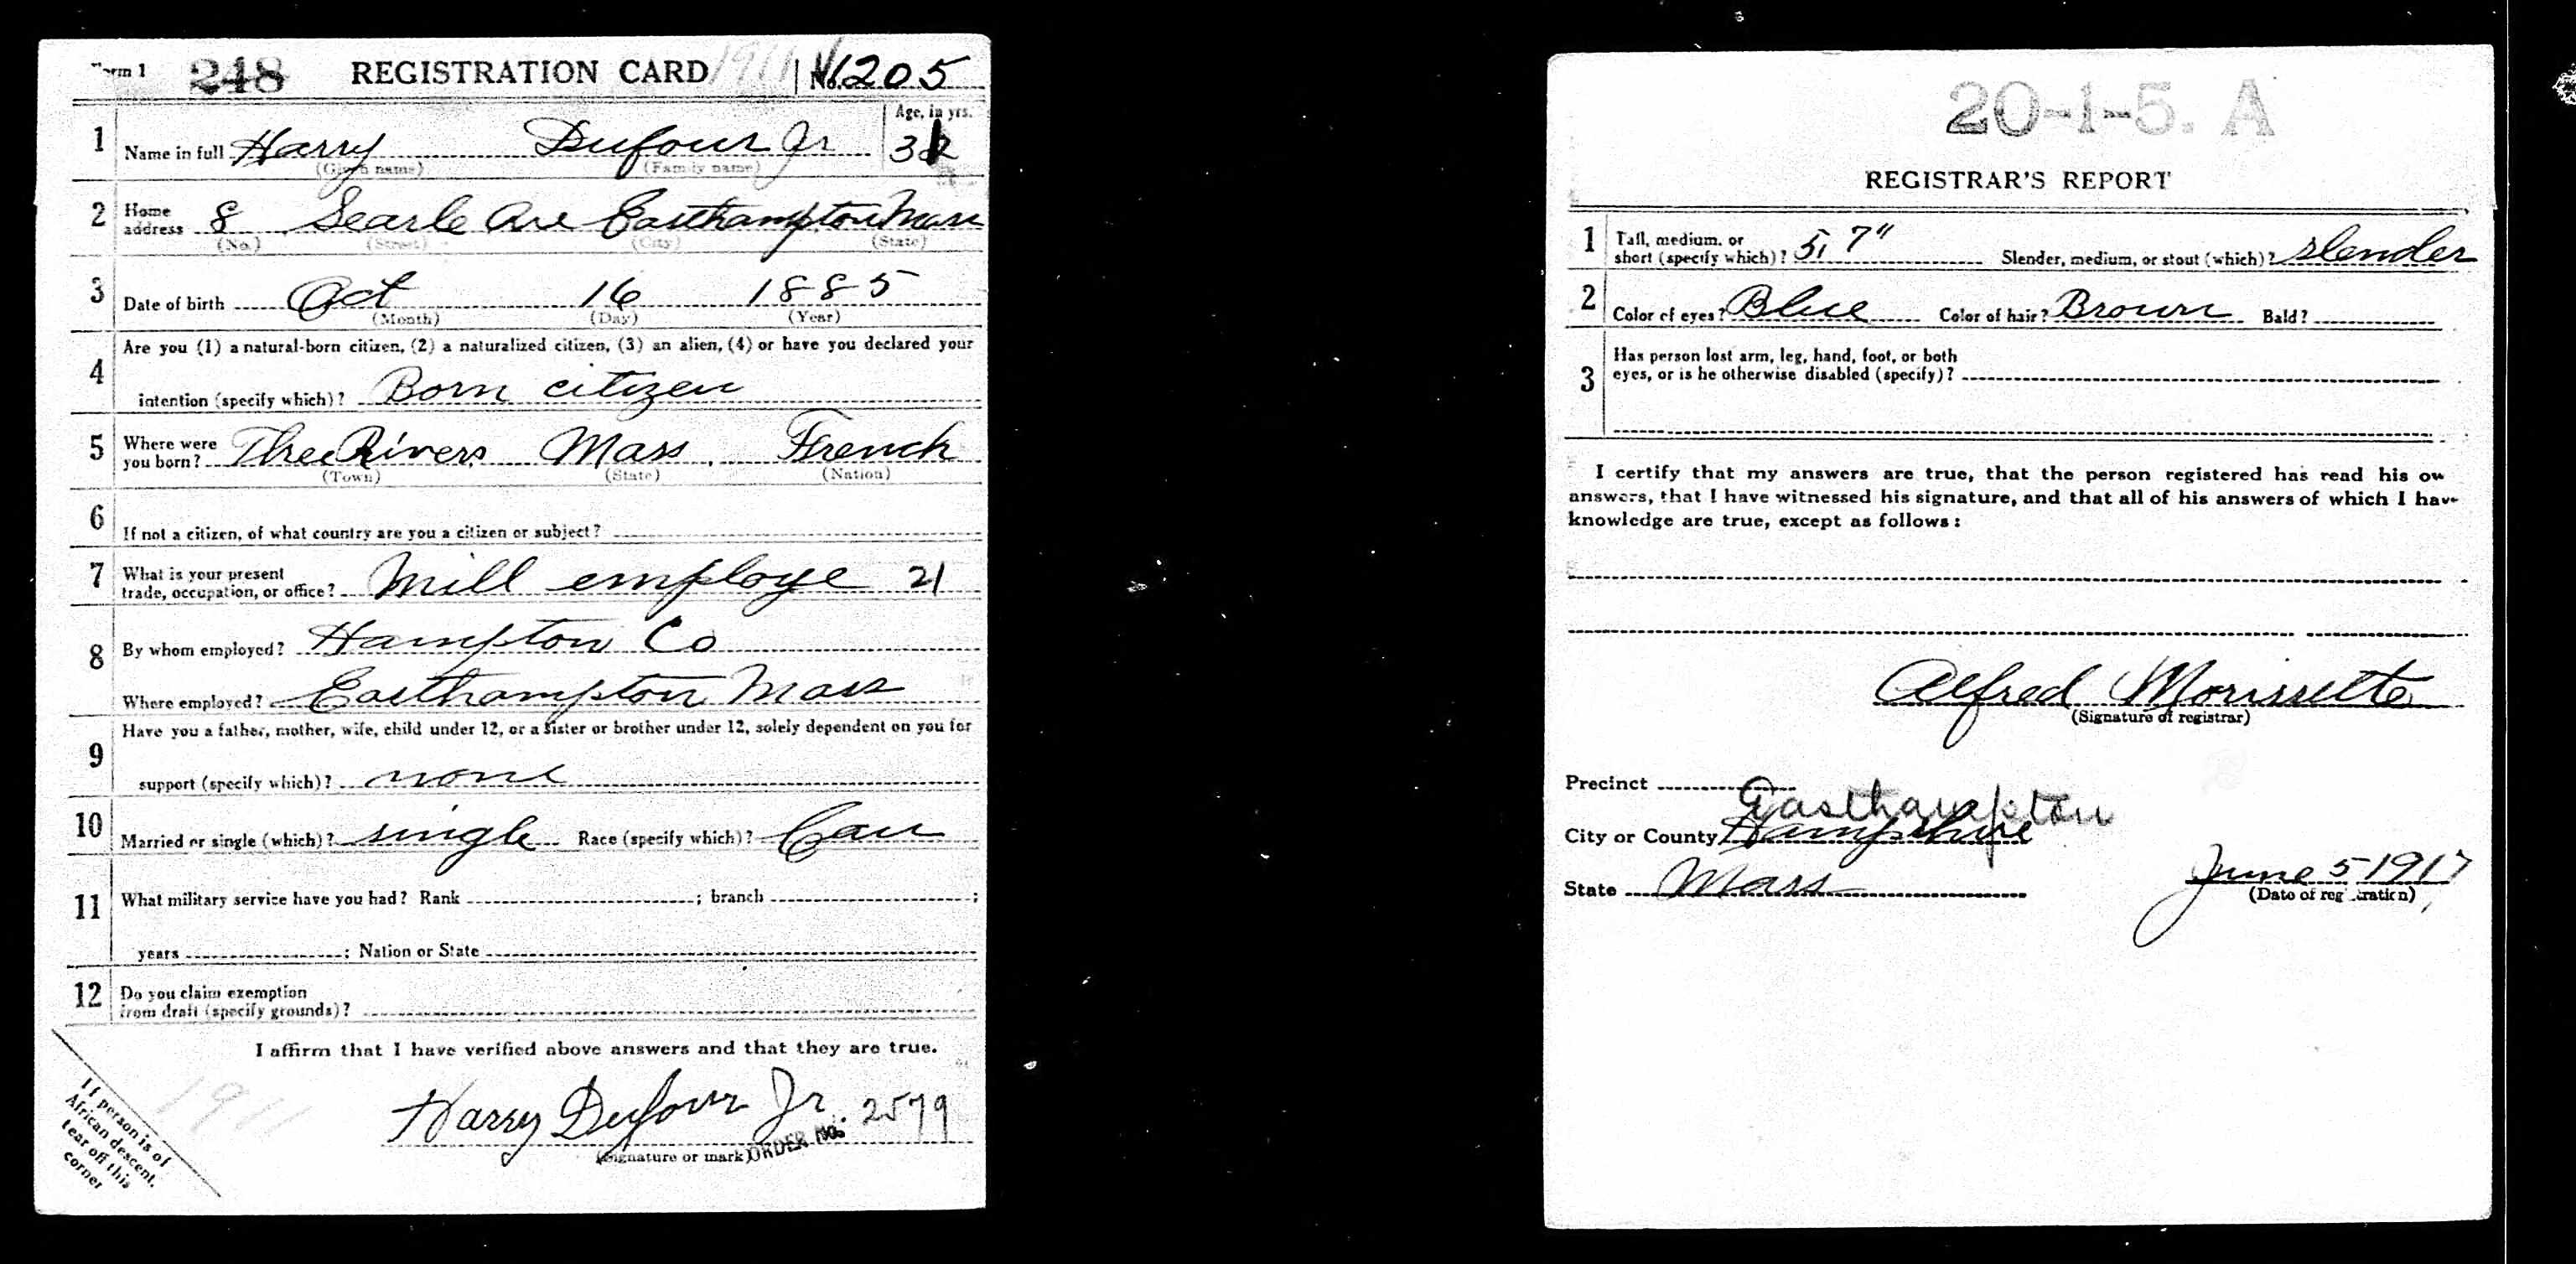 Form 1 248 REGISTRATION CARD 1911 No. 1205
1 Name in full Harry Dufour Jr Age, in yrs. 31
(Given name) (Family name)
2 Home address 8 Searle Ave Easthampton Mass
(No.) (Street) (City) (State)
3 Date of birth Oct 16 1885
(Month) (Day) (Year)
4 Are you (1) a natural-born citizen, (2) a naturalized citizen, (3) an alien, (4) or have you declared your
intention (specify which)? Born citizen
5 Where were you born? Three Rivers Mass. French
(Town) (State) (Nation)
6 If not a citizen, of what country are you a citizen or subject?
7 What is your present trade, occupation, or office? Mill employe 21
8 By whom employed? Hampton Co
Where employed? Easthampton Mass
9 Have you a father, mother, wife, child under 12, or a sister or brother under 12, solely dependent on you for
support (specify which)? none
10 Married or single (which)? single Race (specify which)? Cau
11 What military service have you had? Rank ; branch ;
years ; Nation or State
12 Do you claim exemption
from draft (specify grounds)?
I affirm that I have verified above answers and that they are true.
1911
Harry Dufour Jr. 2579
(Signature or mark) ORDER No.
If person is of
African descent,
tear off this
corner
20-1-5. A
REGISTRAR'S REPORT
1 Tall, medium, or short (specify which)? 5, 7" Slender, medium, or stout (which)? slender
2 Color of eyes? Blue Color of hair? Brown Bald?
3 Has person lost arm, leg, hand, foot, or both
eyes, or is he otherwise disabled (specify)?
I certify that my answers are true, that the person registered has read his ow
answers, that I have witnessed his signature, and that all of his answers of which I hav
knowledge are true, except as follows:
Alfred Morissette
(Signature of registrar)
Precinct
Easthampton
City or County Hampshire
State Mass June 5 1917
(Date of registration)